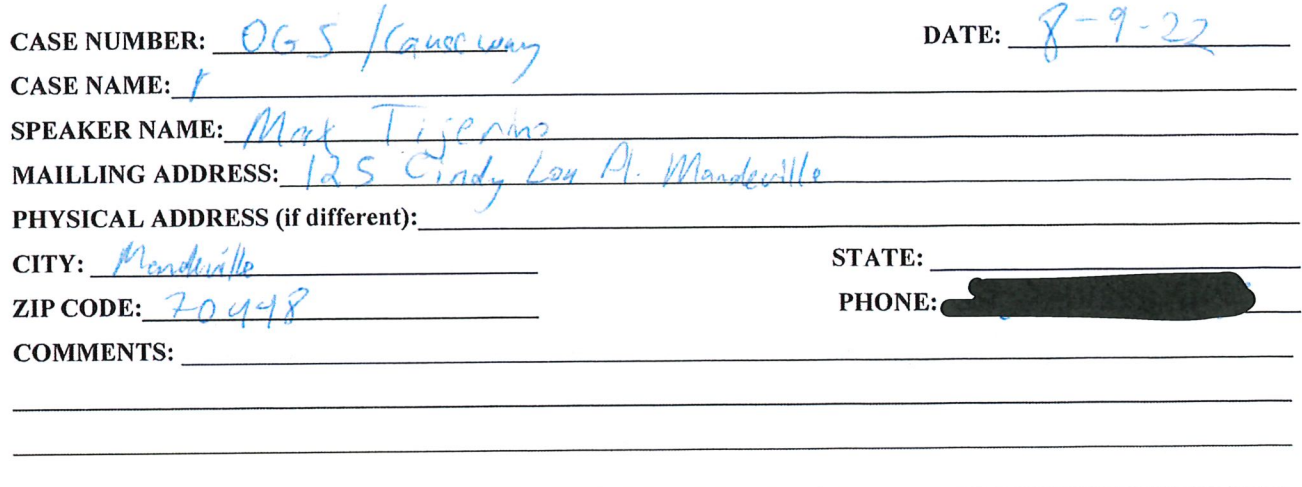 CASE NUMBER: OGS / Causeway DATE: 8-9-22
CASE NAME:
SPEAKER NAME: Mark Tijerino
MAILLING ADDRESS: 125 Cindy Lou Pl. Mandeville
PHYSICAL ADDRESS (if different):
CITY: Mandeville STATE:
ZIP CODE: 70448 PHONE:
COMMENTS: